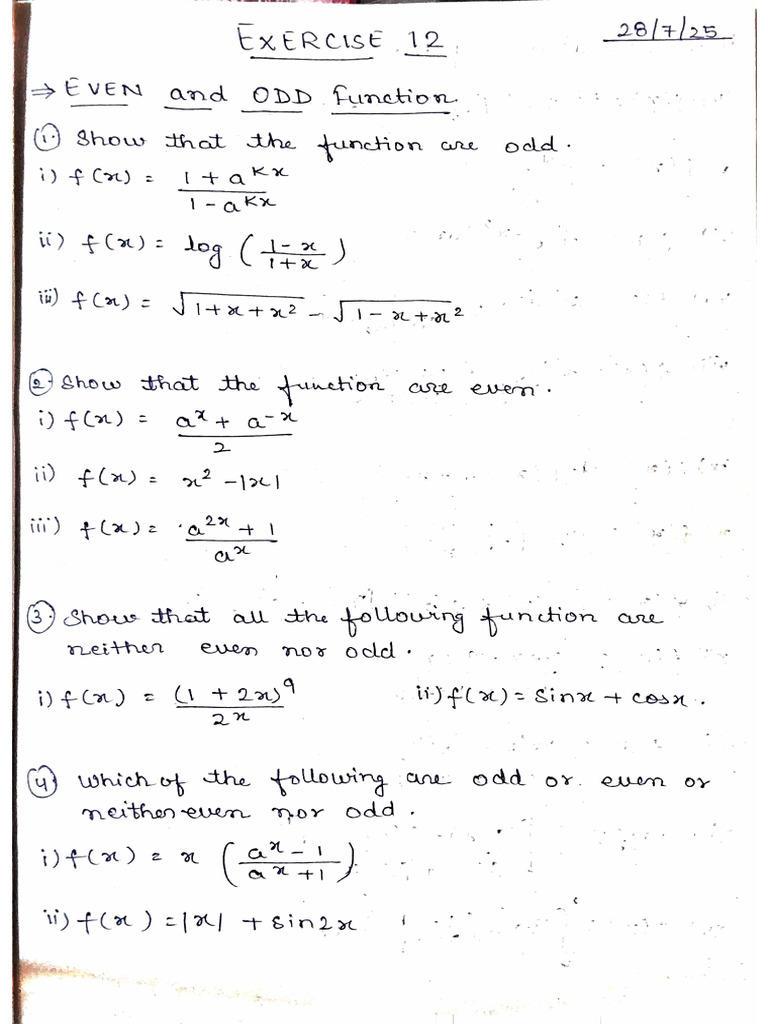 EXERCISE 12
28/7/25
⇒ EVEN and ODD Function
① Show that the function are odd.
i) f(x) = (1 + a^kx) / (1 - a^kx)
ii) f(x) = log ((1-x)/(1+x))
iii) f(x) = √(1+x+x²) - √(1-x+x²)
② Show that the function are even.
i) f(x) = (a^x + a^-x) / 2
ii) f(x) = x² - |x|
iii) f(x) = (a^2x + 1) / a^x
③ Show that all the following function are
neither even nor odd.
i) f(x) = (1 + 2x)^9 / 2^x ii) f(x) = Sinx + cosx.
④ Which of the following are odd or even or
neither even nor odd.
i) f(x) = x ((a^x - 1)/(a^x + 1))
ii) f(x) = |x| + Sin2x